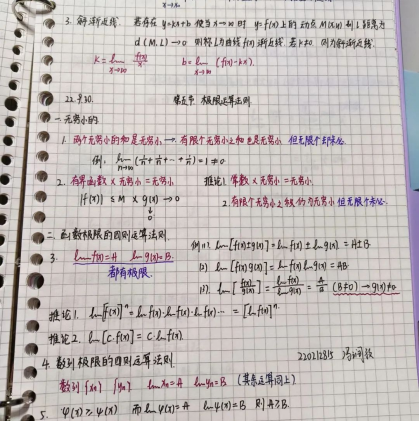 x→∞
3. 斜渐近线 若存在 y=kx+b 使当 x→∞ 时 y=f(x)上的动点M(x,y)到L距离为
d(M,L)→0 则称L为曲线f(x)渐近线 若k≠0 则为斜渐近线
k = lim x→∞ f(x)/x b = lim x→∞ (f(x)-kx).
22.9.30. 第五节 极限运算法则
一. 无穷小的
1. 两个无穷小的和是无穷小 → 有限个无穷小之和也是无穷小 但无限个未必
例: lim n→∞ (1/n + 1/n + … + 1/n) = 1 ≠ 0
2. 有界函数 × 无穷小 = 无穷小 推论1. 常数 × 无穷小 = 无穷小.
|f(x)| ≤ M × g(x) → 0 2. 有限个无穷小之积仍为无穷小 但无限个未必
↓
0
二. 函数极限的四则运算法则.
3. lim f(x)=A lim g(x)=B. 则(1) lim[f(x)±g(x)] = lim f(x) ± lim g(x) = A±B
都有极限. (2) lim[f(x)g(x)] = lim f(x) lim g(x) = AB
(3). lim[f(x)/g(x)] = lim f(x)/lim g(x) = A/B (B≠0) → g(x)≠0
推论1. lim[f(x)]ⁿ = lim f(x)·lim f(x)·lim f(x)… = [lim f(x)]ⁿ
推论2. lim[c·f(x)] = c·lim f(x)
4. 数列极限的四则运算法则.
数列 {xn} {yn} lim xn = A lim yn = B (其余运算同上)
5. φ(x) ≥ ψ(x) 而 lim φ(x) = A lim ψ(x) = B 则 A≥B.